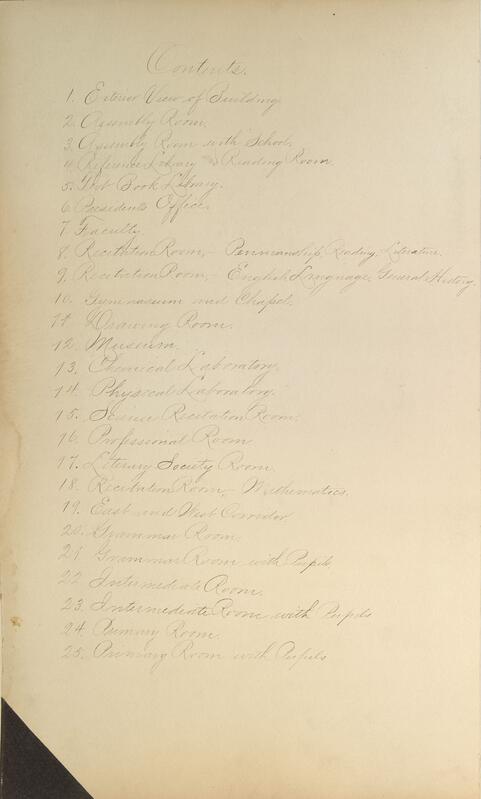 Contents.
1. Exterior View of Building
2. Assembly Room.
3. Assembly Room with School.
4. Reference Library and Reading Room.
5. Text Book Library.
6. Presidents Office.
7. Faculty.
8. Recitation Room,- Penmanship, Reading, Literature.
9. Recitation Room,- English Language, General History.
10. Gymnasium and Chapel.
11. Drawing Room.
12. Museum.
13. Chemical Laboratory.
14. Physical Laboratory.
15. Science Recitation Room.
16. Professional Room
17. Literary Society Room.
18. Recitation Room,- Mathematics.
19. East and West Corridor
20. Grammar Room.
21. Grammar Room with Pupils
22. Intermediate Room.
23. Intermediate Room with Pupils
24. Primary Room.
25. Primary Room with Pupils